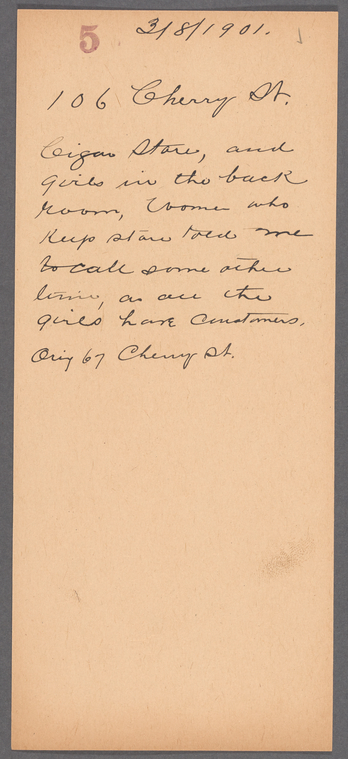 5
3/8/1901.
106 Cherry St.
Cigar Store, and
girls in the back
room, Women who
keep store told me
to call some other
time, as all the
girls have customers.
Orig 67 Cherry St.